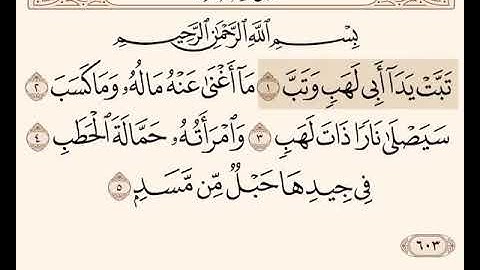 بِسْمِ ٱللَّهِ ٱلرَّحْمَٰنِ ٱلرَّحِيمِ
تَبَّتْ يَدَآ أَبِى لَهَبٍ وَتَبَّ ١ مَآ أَغْنَىٰ عَنْهُ مَالُهُۥ وَمَا كَسَبَ ٢
سَيَصْلَىٰ نَارًا ذَاتَ لَهَبٍ ٣ وَٱمْرَأَتُهُۥ حَمَّالَةَ ٱلْحَطَبِ ٤
فِى جِيدِهَا حَبْلٌ مِّن مَّسَدٍۭ ٥
٦٠٣